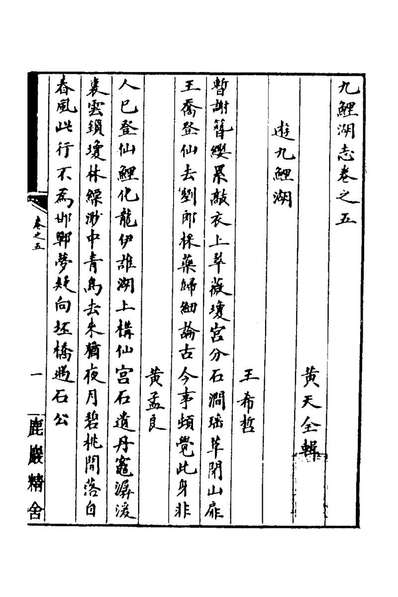 九鯉湖志卷之五
黄天全輯
遊九鯉湖
王希哲
暫謝簪纓累敲衣上翠薇瓊宮分石澗瑶草閉山扉
王喬登仙去劉郎採藥歸細論古今事頻覺此身非
黄孟良
人已登仙鯉化龍伊誰湖上構仙宮石遺丹竈潺湲
裏雲鎖瓊林縹渺中青鳥去来猶夜月碧桃開落自
春風此行不爲邯鄲夢疑向圯橋遇石公
卷之五
一
鹿巖精舍